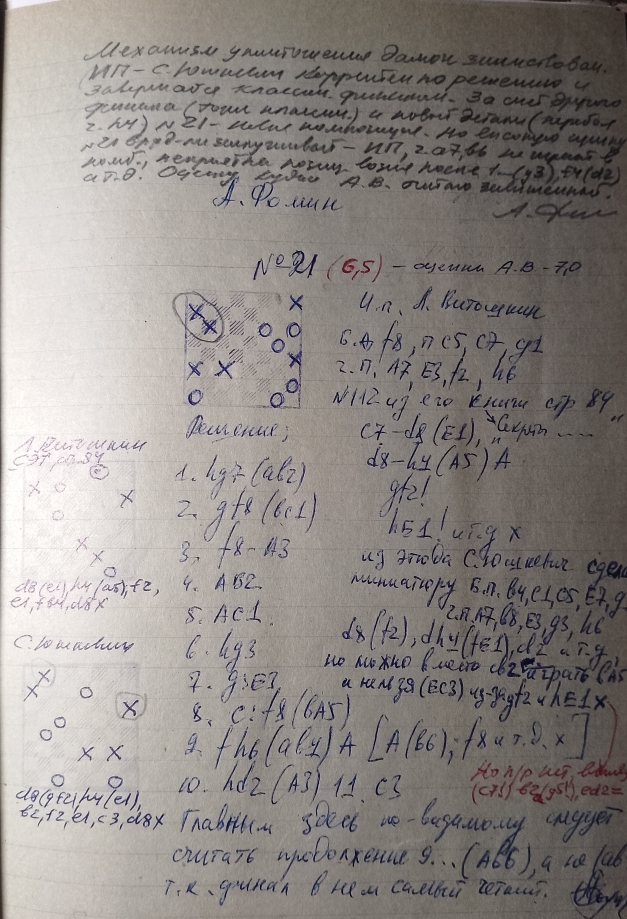 Механизм уничтожения дамок заимствован.
ИП - С. Юшкевич корректен по решению и
завершается классич. финалом. За счёт другого
финала (тоже классич.) и новой детали (перебой
ч. h4) №21 - новая композиция. Но высокую оценку
№21 вряд ли заслуживает - ИП, ч. a7, b6 не играют в
комб., неприятна позиц. после 1...(g3), f4(d2)
и т.д. Оценку судьи А.В. считаю завышенной.
А. Фомин
№ 21 (6,5) - оценка А.В. - 7,0
И.п. Л. Витошкин
Б.Д. f8, п C5, C7, g1
ч.п. A7, E3, f2, h6
№112 из его книги стр 84
"Секреты
Решение;
C7-d8 (E1),
d8-h4 (A5) A
gf2!
hE1! и т.д x
1. hg7 (ab2)
2. gf8 (bc1)
3. f8-A3
4. AB2
5. AC1
6. hg3
7. g3E3
8. c:f8 (bA5)
9. fh6 (ab4) A [A(b6); f8 и т.д. x]
10. hd2 (A3) 11. C3
из этюда С. Юшкевич сдела
миниатюру Б.п. B4, C1, C5, E7, g
ч.п. A7, B8, E3, g3, h6
d8 (f2), dh4 (fE1), b2 и т.д,
но можно вместо cb2 играть
а нельзя (EC3) из-за gf2 и hE1 x
Но п/р нет, в
Л. Витошкин
СЭТ, стр. 84
d8(e1), h4(a5), f2,
e1, f64, d8x
С. Юшкевич
d8(gf2), h4(e1),
b2, f2, e1, c3, d8x
Главным здесь по-видимому следует
считать продолжение 9...(Ab6), а не (ab
т.к. финал в нем самый четкий.